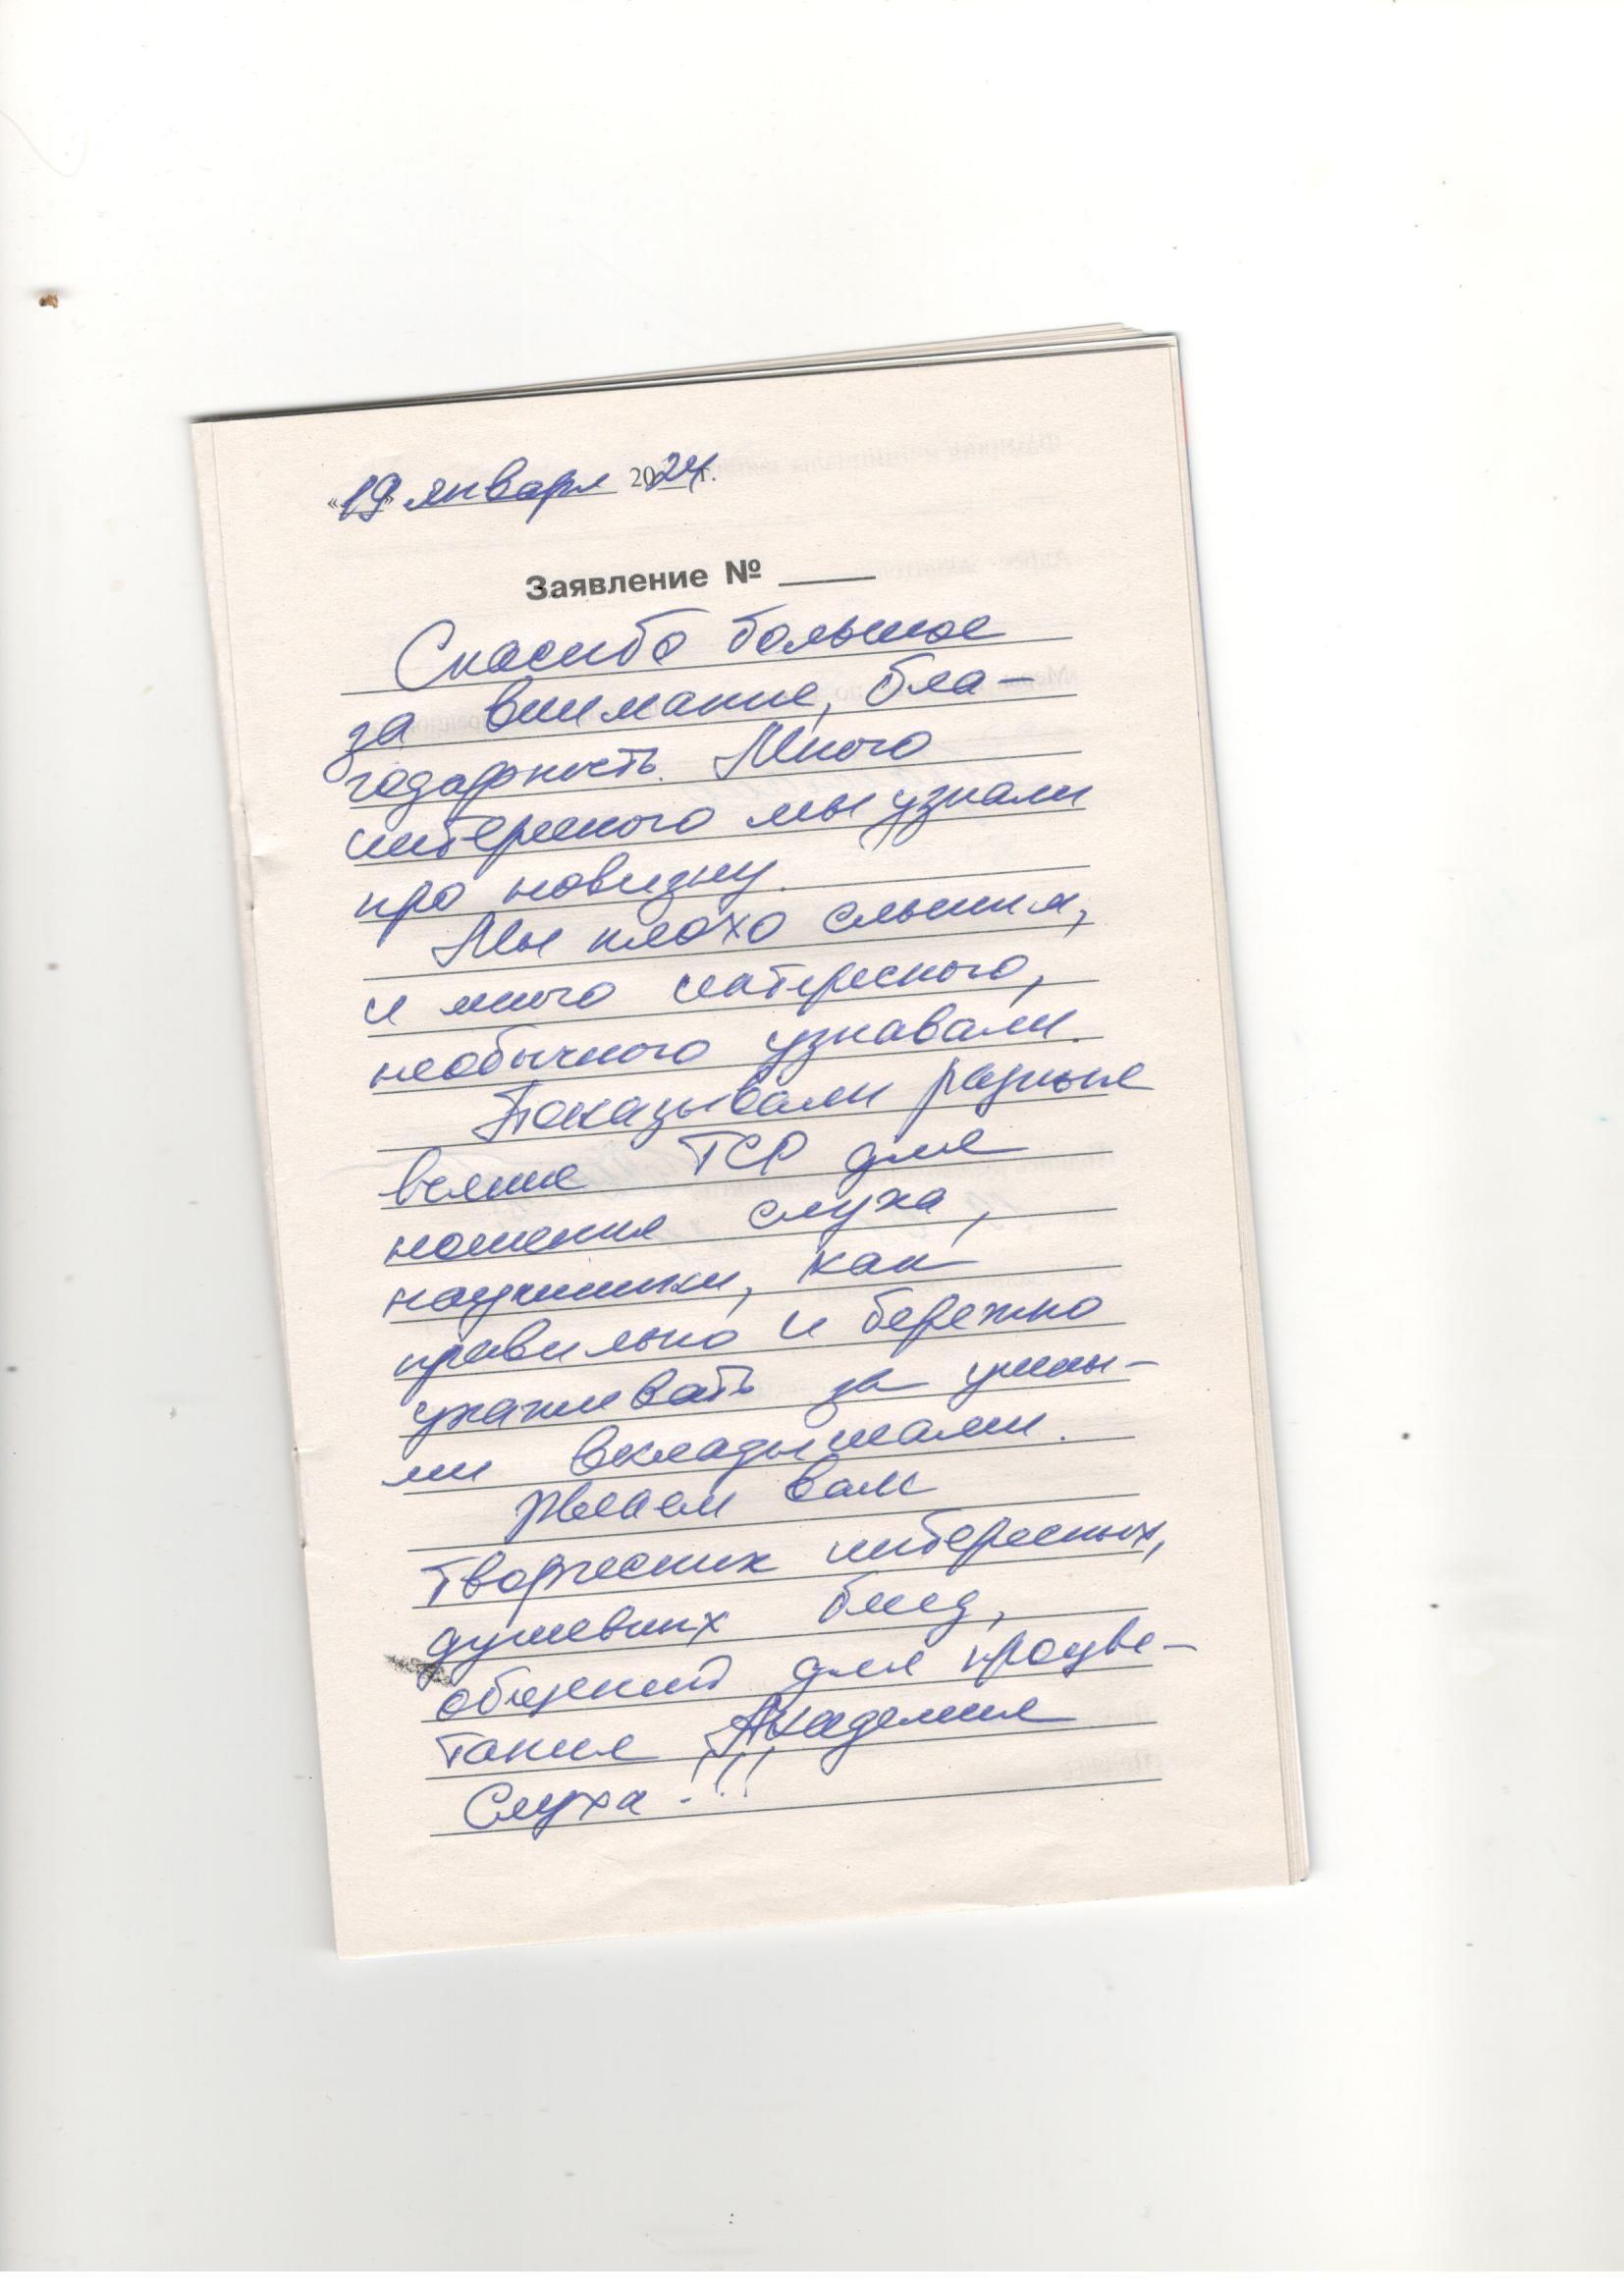 «19» января 2024 г.
Заявление № ____
Спасибо большое
за внимание, бла-
годарность. Много
интересного мы узнали
про новизну.
Мы плохо слышим,
и много интересного,
необычного узнавали.
Показывали разные
ТСР для
ношения слуха,
наушники, как
правильно и бережно
ухаживать за ушны-
ми вкладышами.
Желаем вам
творческих интересных,
душевных бесед,
общений для процве-
тания Академия
Слуха!!!